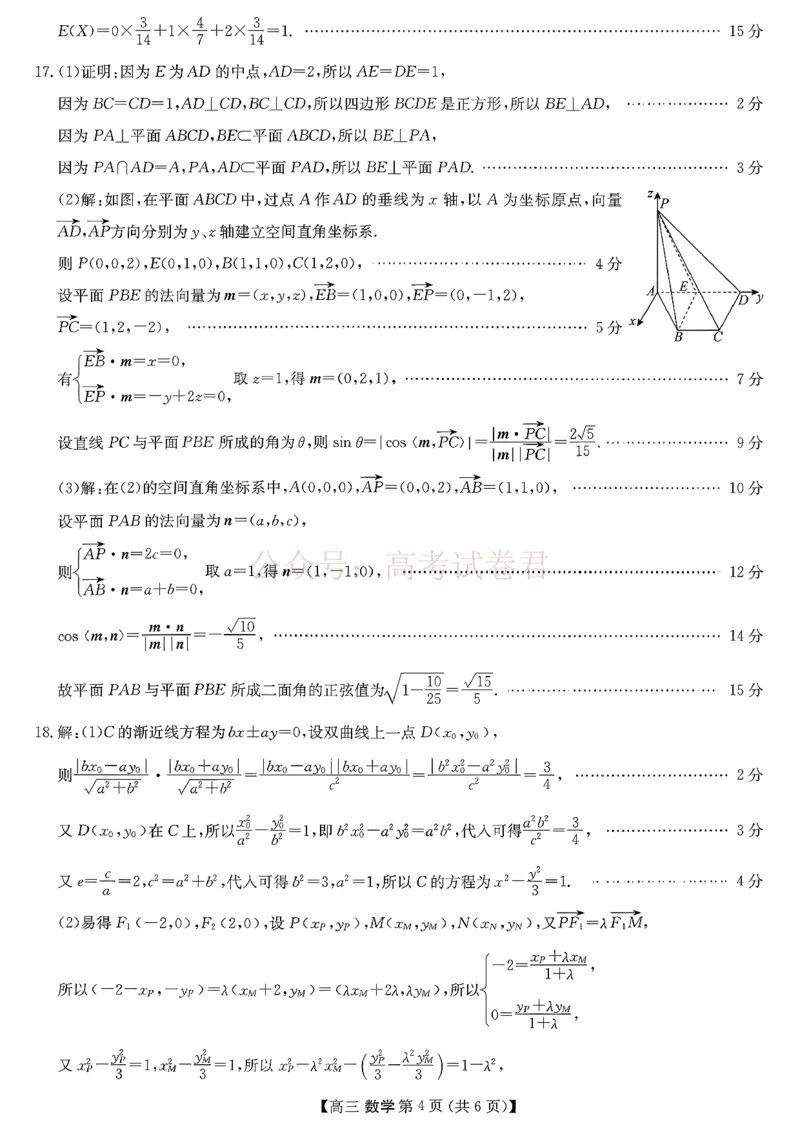 E(X)=0×3/14+1×4/7+2×3/14=1. …… 15分
17.(1)证明:因为E为AD的中点,AD=2,所以AE=DE=1,
因为BC=CD=1,AD⊥CD,BC⊥CD,所以四边形BCDE是正方形,所以BE⊥AD, …… 2分
因为PA⊥平面ABCD,BE⊂平面ABCD,所以BE⊥PA,
因为PA∩AD=A,PA,AD⊂平面PAD,所以BE⊥平面PAD. …… 3分
(2)解:如图,在平面ABCD中,过点A作AD的垂线为x轴,以A为坐标原点,向量
AD→,AP→方向分别为y、z轴建立空间直角坐标系.
则P(0,0,2),E(0,1,0),B(1,1,0),C(1,2,0), …… 4分
设平面PBE的法向量为m=(x,y,z),EB→=(1,0,0),EP→=(0,-1,2),
PC→=(1,2,-2), …… 5分
z P A E D y x B C
有{EB→·m=x=0, EP→·m=-y+2z=0, 取z=1,得m=(0,2,1), …… 7分
设直线PC与平面PBE所成的角为θ,则sin θ=|cos〈m,PC→〉|=|m·PC→|/|m||PC→|=2√5/15. …… 9分
(3)解:在(2)的空间直角坐标系中,A(0,0,0),AP→=(0,0,2),AB→=(1,1,0), …… 10分
设平面PAB的法向量为n=(a,b,c),
则{AP→·n=2c=0, AB→·n=a+b=0, 取a=1,得n=(1,-1,0), …… 12分
公众号:高考试卷君
cos〈m,n〉=m·n/|m||n|=-√10/5, …… 14分
故平面PAB与平面PBE所成二面角的正弦值为√(1-10/25)=√15/5. …… 15分
18.解:(1)C的渐近线方程为bx±ay=0,设双曲线上一点D(x₀,y₀),
则|bx₀-ay₀|/√(a²+b²)·|bx₀+ay₀|/√(a²+b²)=|bx₀-ay₀||bx₀+ay₀|/c²=|b²x₀²-a²y₀²|/c²=3/4, …… 2分
又D(x₀,y₀)在C上,所以x₀²/a²-y₀²/b²=1,即b²x₀²-a²y₀²=a²b²,代入可得a²b²/c²=3/4, …… 3分
又e=c/a=2,c²=a²+b²,代入可得b²=3,a²=1,所以C的方程为x²-y²/3=1. …… 4分
(2)易得F₁(-2,0),F₂(2,0),设P(x_P,y_P),M(x_M,y_M),N(x_N,y_N),又PF₁→=λF₁M→,
所以(-2-x_P,-y_P)=λ(x_M+2,y_M)=(λx_M+2λ,λy_M),所以{-2=(x_P+λx_M)/(1+λ), 0=(y_P+λy_M)/(1+λ),
又x_P²-y_P²/3=1,x_M²-y_M²/3=1,所以x_P²-λ²x_M²-(y_P²/3-λ²y_M²/3)=1-λ²,
【高三 数学 第4页(共6页)】